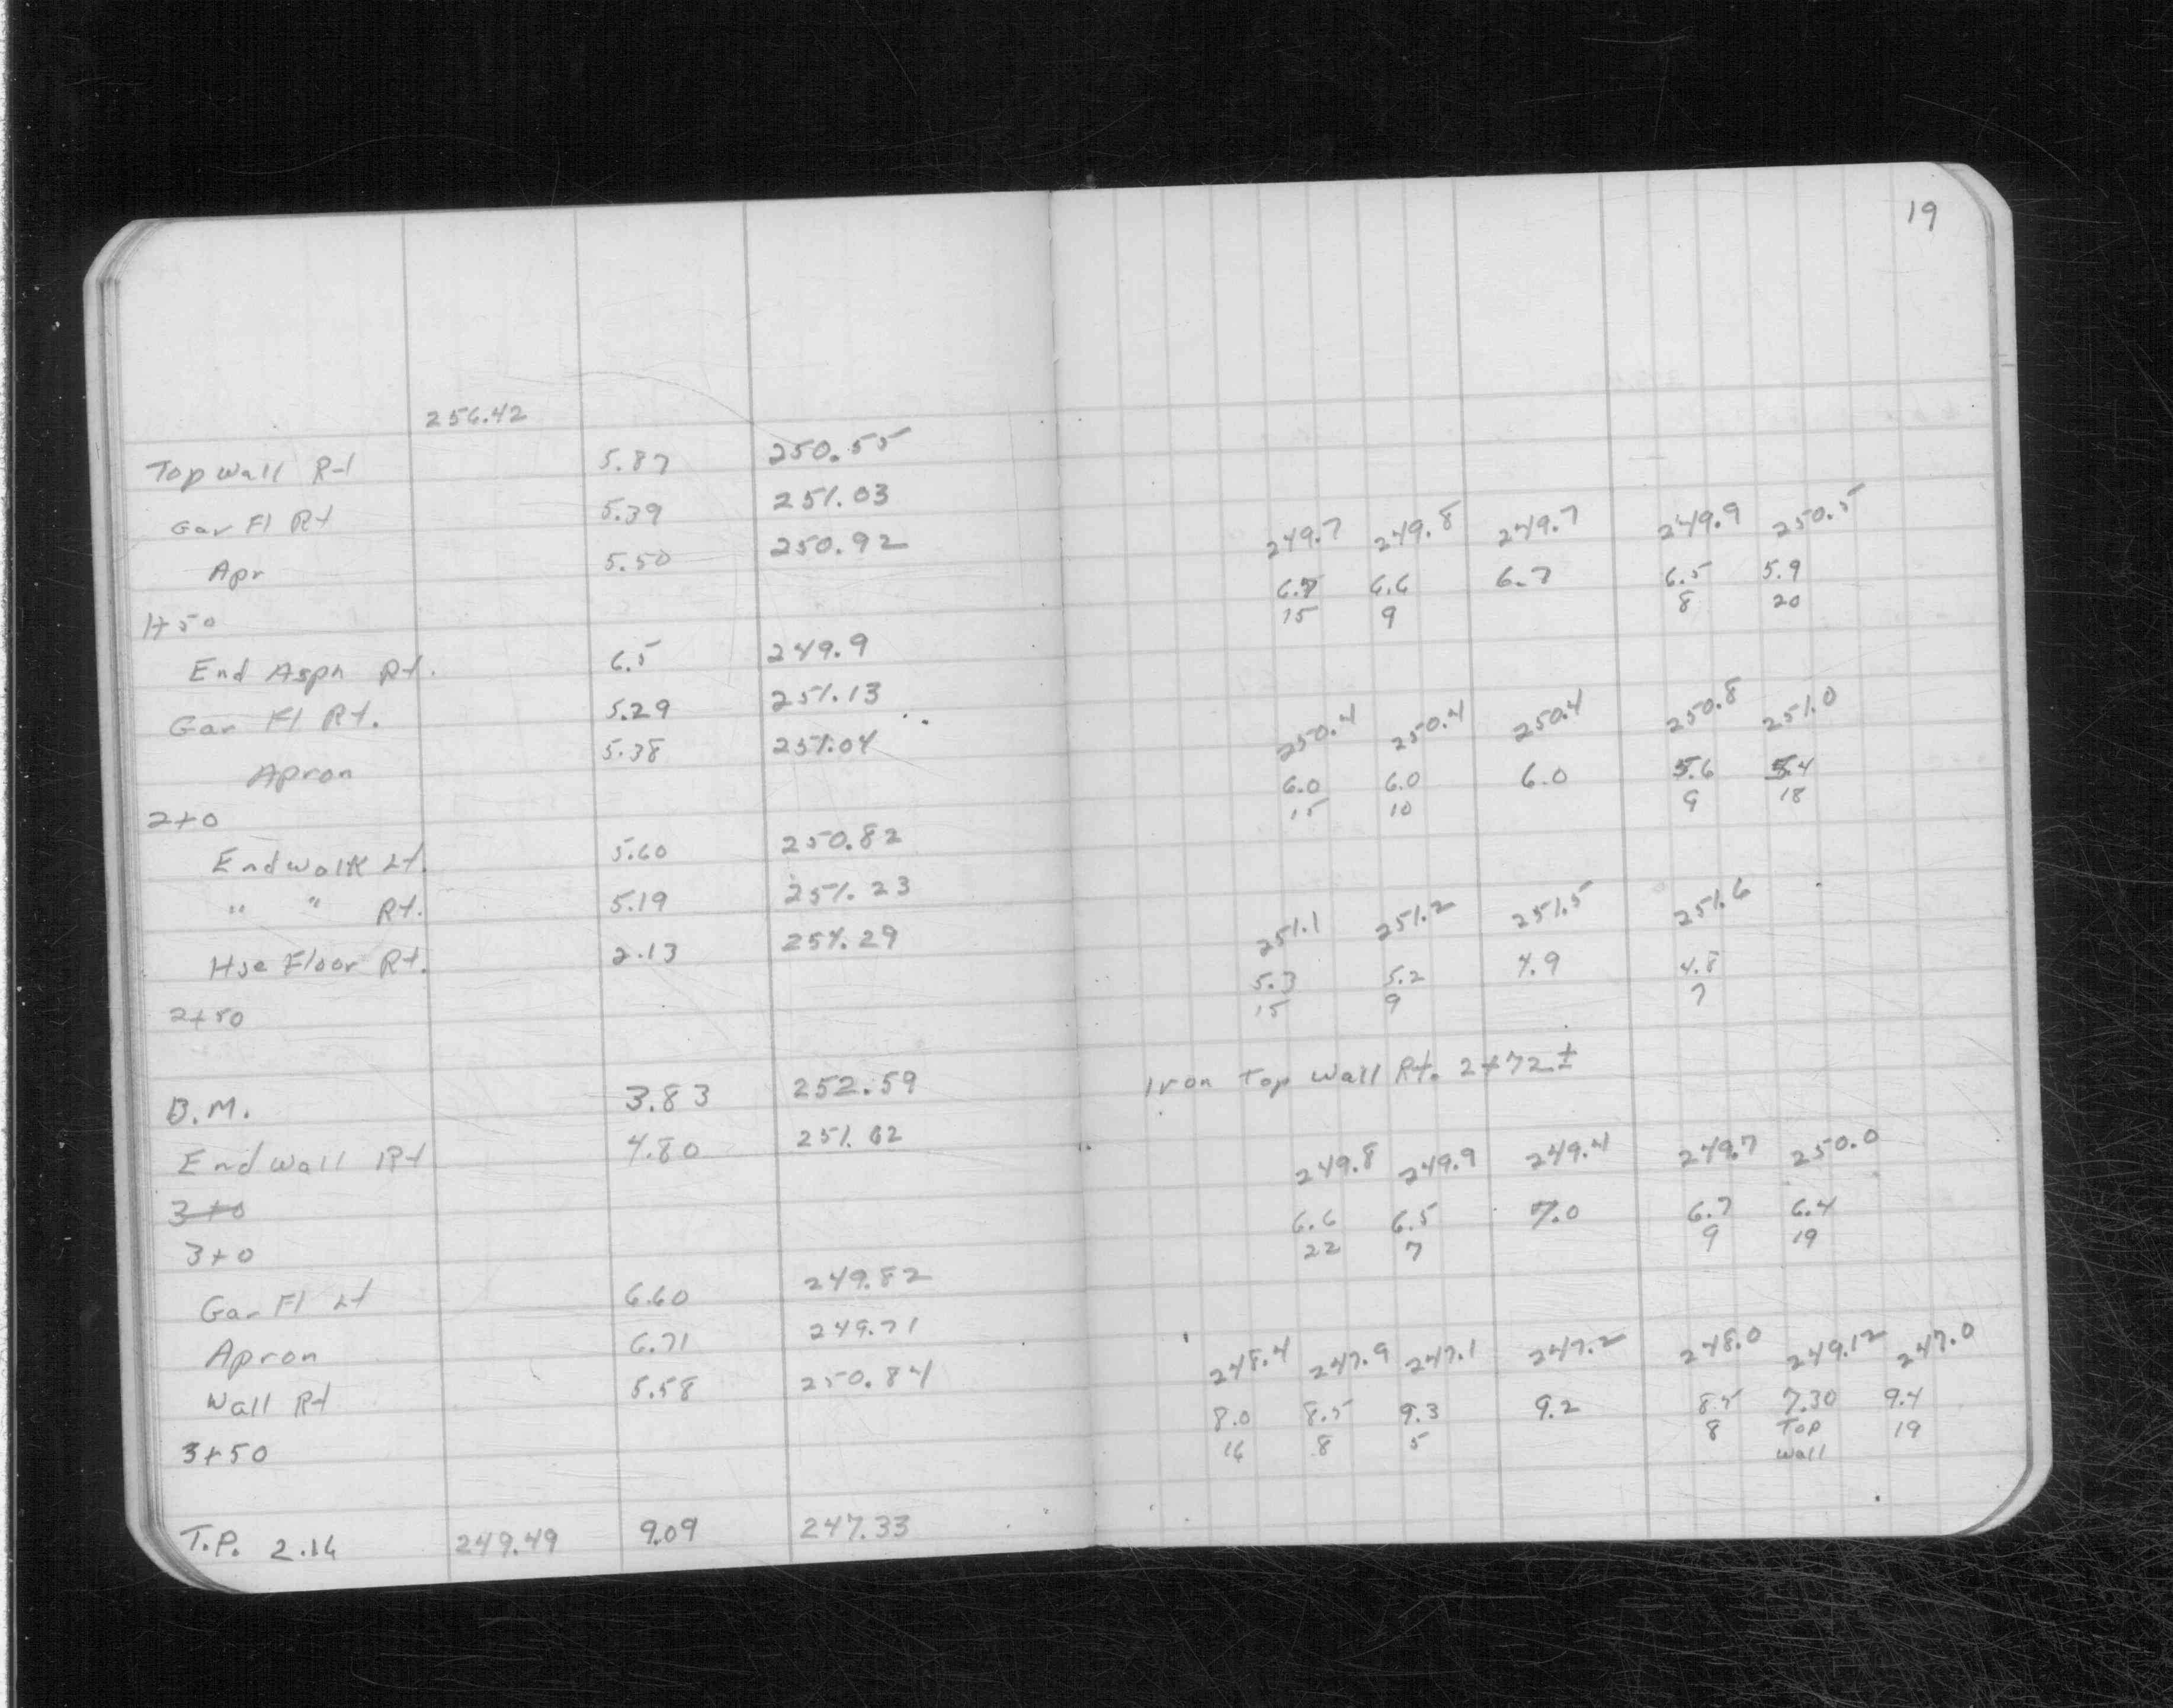 19
256.42
Top Wall Rt 5.87 250.55
Gar Fl Rt 5.39 251.03
Apr 5.50 250.92
249.7 249.8 249.7 249.9 250.5
1+50 6.7 6.6 6.7 6.5 5.9
15 9 8 20
End Asph Rt. 6.5 249.9
Gar Fl Rt. 5.29 251.13
Apron 5.38 251.04
250.4 250.4 250.4 250.8 251.0
2+0 6.0 6.0 6.0 5.6 5.4
15 10 9 18
End walk Lt. 5.60 250.82
" " Rt. 5.19 251.23
Hse Floor Rt. 2.13 254.29
251.1 251.2 251.5 251.6
2+50 5.3 5.2 4.9 4.8
15 9 7
B.M. 3.83 252.59 Iron Top Wall Rt. 2+72±
End Wall Rt 4.80 251.62
3+0
249.8 249.9 249.4 249.7 250.0
3+0 6.6 6.5 7.0 6.7 6.4
22 7 9 19
Gar Fl Lt 6.60 249.82
Apron 6.71 249.71
Wall Rt 5.58 250.84
248.4 247.9 247.1 247.2 248.0 249.12 247.0
3+50 8.0 8.5 9.3 9.2 8.5 7.30 9.4
16 8 5 8 Top 19
Wall
T.P. 2.16 249.49 9.09 247.33